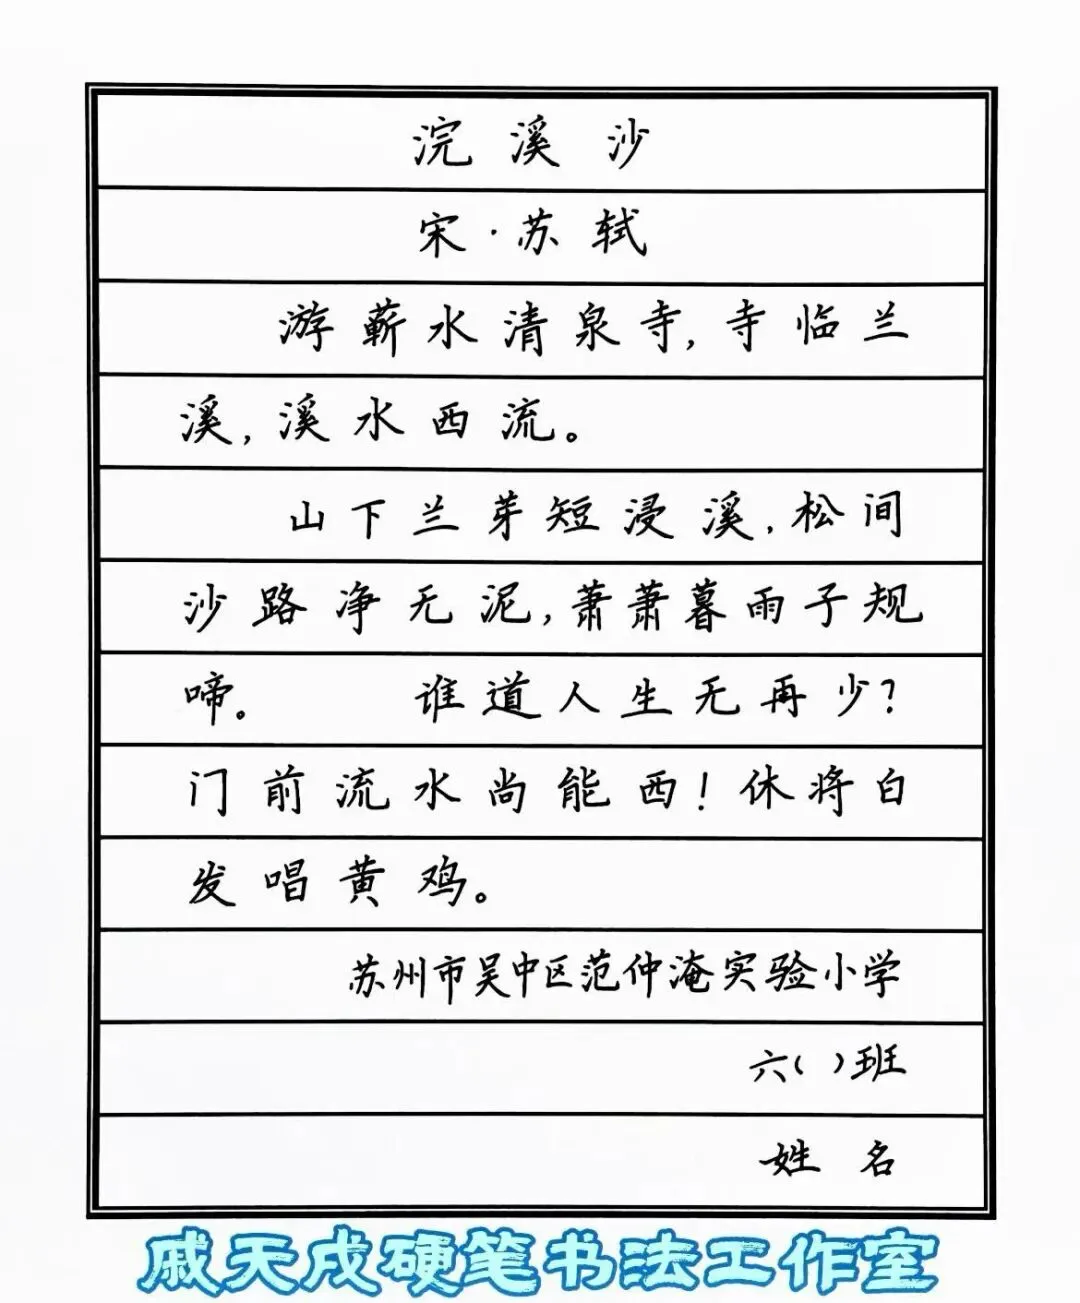 浣溪沙
宋·苏轼
游蕲水清泉寺,寺临兰
溪,溪水西流。
山下兰芽短浸溪,松间
沙路净无泥,萧萧暮雨子规
啼。 谁道人生无再少?
门前流水尚能西!休将白
发唱黄鸡。
苏州市吴中区范仲淹实验小学
六( )班
姓名
戚天戌硬笔书法工作室